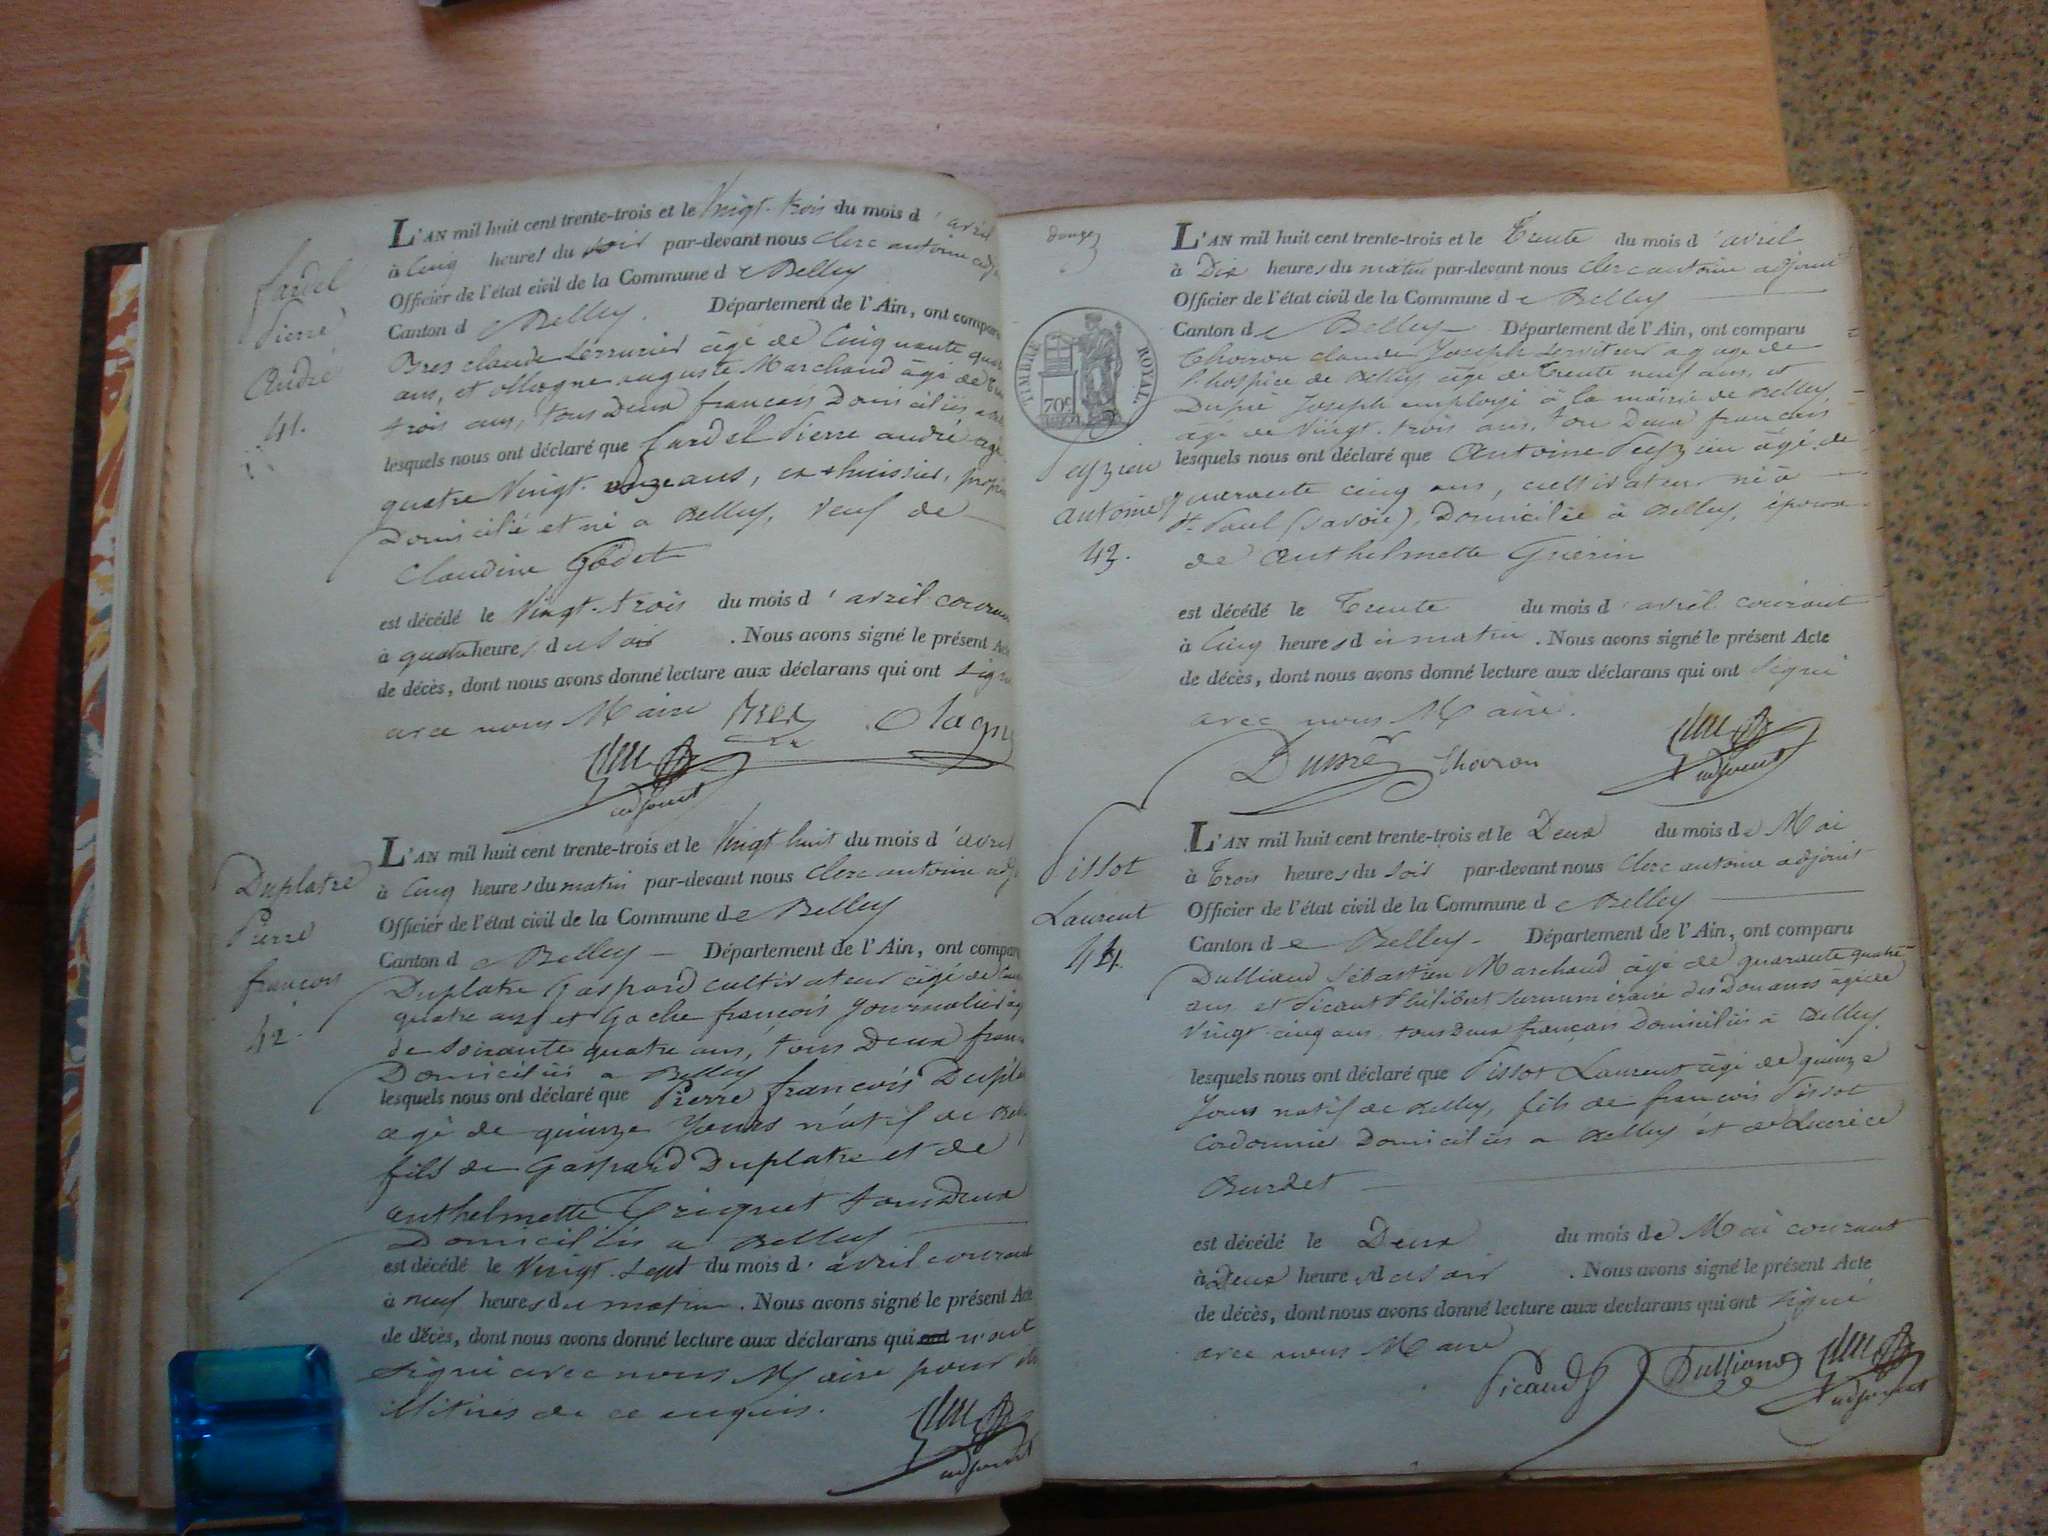 fardel
Pierre
André
41.
L'AN mil huit cent trente-trois et le Vingt-trois du mois d'avril
à Cinq heures du soir par-devant nous Clerc antoine adj
Officier de l'état civil de la Commune de Belley
Canton de Belley. Département de l'Ain, ont comparu
Claude Serrurier âgé de Cinquante quat
ans, et auguste Marchand âgé de
trois ans, tous Deux français Domiciliés
lesquels nous ont déclaré que fardel Pierre andré agé
quatre Vingt-onze ans, ex-huissier, prop
Domicilié et né a Belley, Veuf de
Claudine Godet
est décédé le Vingt-trois du mois d'avril couran
à quatre heures du soir. Nous avons signé le présent Acte
de décès, dont nous avons donné lecture aux déclarans qui ont signé
avec nous Maire
adjoint
Duplatre
Pierre
françois
42.
L'AN mil huit cent trente-trois et le Vingt huit du mois d'avril
à Cinq heures du matin par-devant nous Clerc antoine adj
Officier de l'état civil de la Commune de Belley
Canton de Belley — Département de l'Ain, ont comparu
Duplatre Gaspard cultivateur âgé de
quatre ans et Gache françois Journalier ag
de soixante quatre ans, tous Deux fran
Domiciliés a Belley
lesquels nous ont déclaré que Pierre françois Dupla
agé de quinze Jours natif de Bell
fils de Gaspard Duplatre et de
anthelmette Tricquet tous Deux
Domiciliés a Belley
est décédé le Vingt-sept du mois d'avril courant
à neuf heures du matin. Nous avons signé le présent Acte
de décès, dont nous avons donné lecture aux déclarans qui ont n'ont
signé avec nous Maire pour
illitirés de ce enquis.
adjoint
douze
TIMBRE ROYAL.
70c
Peyzieu
antoine
43.
L'AN mil huit cent trente-trois et le Trente du mois d'avril
à Dix heures du matin par-devant nous Clerc antoine adjoint
Officier de l'état civil de la Commune de Belley
Canton de Belley — Département de l'Ain, ont comparu
Thorron claude Joseph serviteur a gage de
l'hospice de Belley âgé de Trente neuf ans, et
Dupré Joseph employé à la mairie de Belley
âgé de Vingt-trois ans, tou Deux français
lesquels nous ont déclaré que Antoine Peyzieu âgé de
quarante cinq ans, cultivateur né à
St. Paul (Savoie), Domicilié à Belley, époux
de Anthelmette Guérin
est décédé le Trente du mois d'avril courant
à Cinq heures du matin. Nous avons signé le présent Acte
de décès, dont nous avons donné lecture aux déclarans qui ont Signé
avec nous Maire.
Dupré Thorron
adjoint
Pissot
Laurent
44.
L'AN mil huit cent trente-trois et le Deux du mois de Mai
à Trois heures du soir par-devant nous Clerc antoine adjoint
Officier de l'état civil de la Commune de Belley
Canton de Belley — Département de l'Ain, ont comparu
Dulliand Sébastien Marchand âgé de quarante quatre
ans et Picaut Philibert surnuméraire des Douanes âgé de
Vingt-cinq ans tous Deux français Domiciliés à Belley.
lesquels nous ont déclaré que Pissot Laurent âgé de quinze
Jours natif de Belley, fils de françois Pissot
Cordonnier Domiciliés a Belley et de Lucrèce
Burdet
est décédé le Deux du mois de Mai courant
à Deux heures du soir. Nous avons signé le présent Acte
de décès, dont nous avons donné lecture aux declarans qui ont signé
avec nous Maire
Picaud Dulliand
adjoint